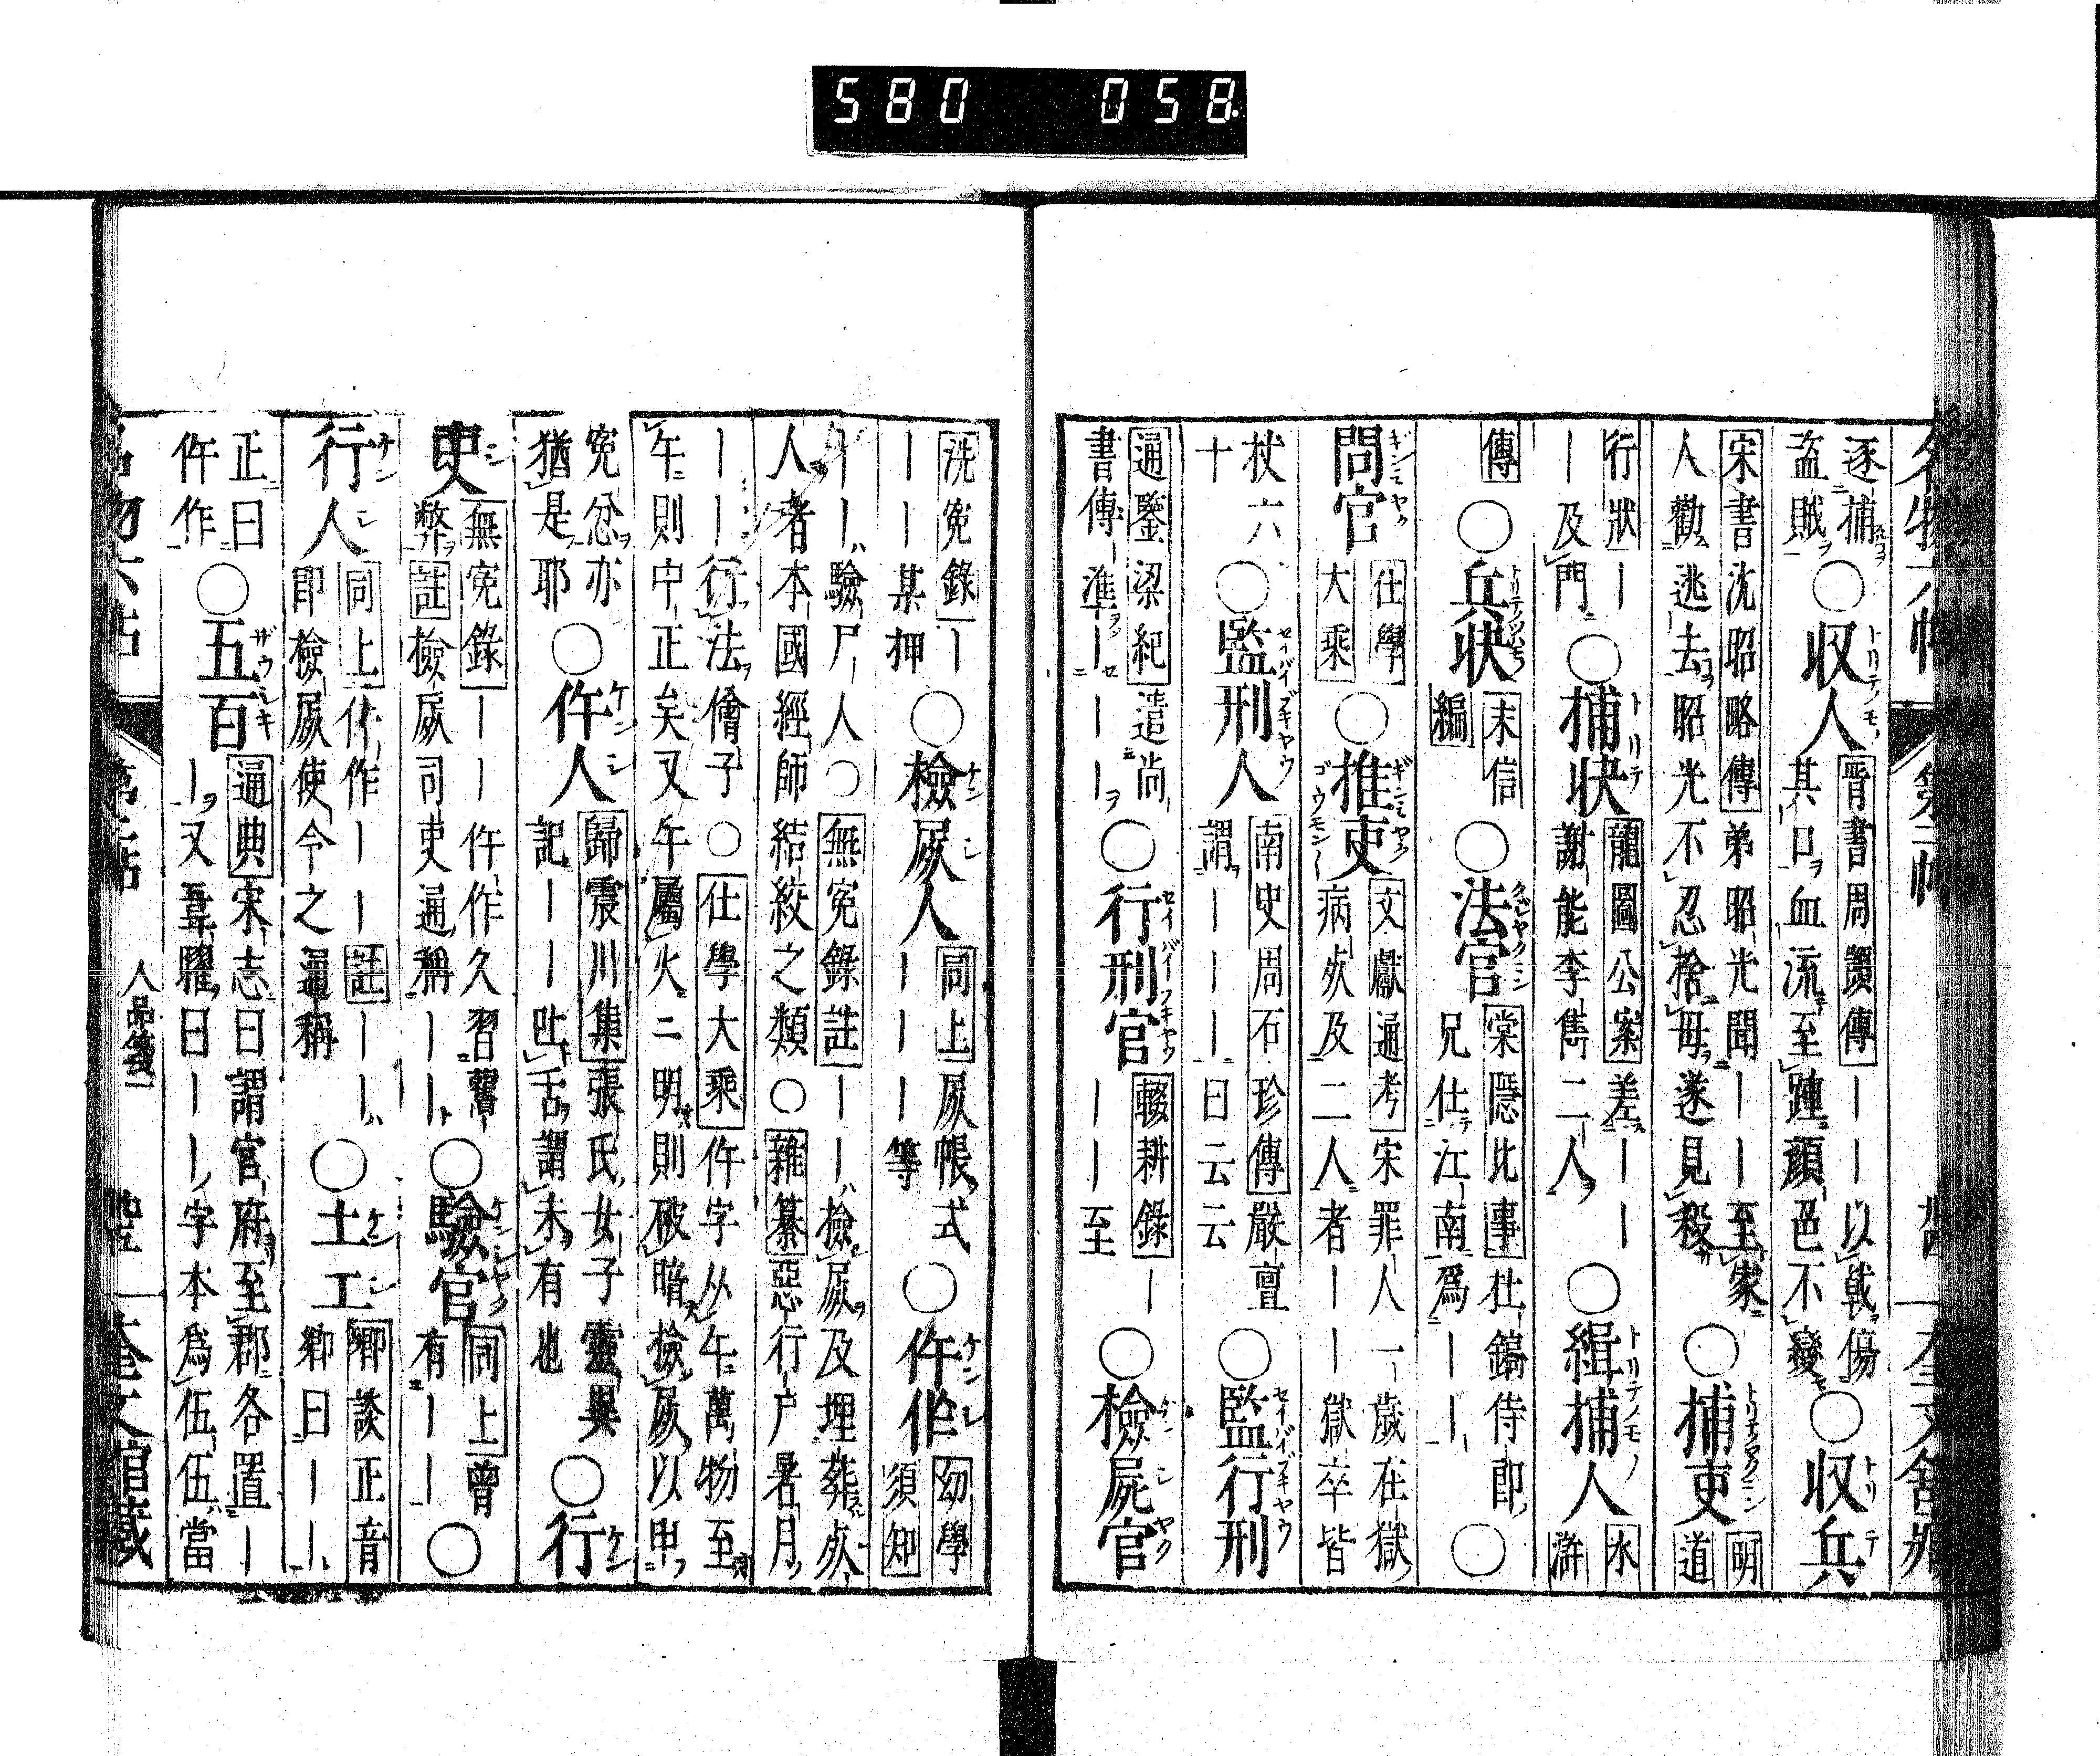 580 058
名物六帖 第二帖
逐捕盗賊○収人晋書周顗傳｜｜以戟傷其口血流至踵顔色不變○収兵
宋書沈昭略傳弟昭光聞｜｜至家人勸逃去昭光不忍捨母遂見殺○捕吏明道
行狀｜｜及門○捕状龍圖公案差｜｜謝能李雋二人○緝捕人水滸
傳○兵状末信編○法官棠隱比事杜鎬侍郎兄仕江南爲｜｜○
問官仕學大乘○推吏文獻通考宋罪人一歲在獄病死及二人者｜｜獄卒皆
杖六十○監刑人南史周石珍傳嚴亶謂｜｜｜曰云云○監行刑
通鑒梁紀遣尚書傳準｜｜｜○行刑官輟耕錄｜｜｜至○檢屍官
洗寃錄｜｜｜某押○檢屍人同上屍帳式｜｜｜｜等○仵作幼學須知
｜｜驗尸人○無寃錄註｜｜檢屍及埋葬死人者本國經師結絞之類○雜纂惡行户暑月
｜｜｜行法儈子○仕學大乘仵字从午萬物至午則中正矣又午屬火二明則破暗撿屍以申
寃忿亦猶是耶○仵人歸震川集張氏女子靈異記｜｜吐舌謂未有也○行
吏無寃錄｜｜仵作久習弊註檢屍司吏通稱｜｜○驗官同上曾有｜｜○
行人同上仵作｜｜註｜｜即檢屍使令之通稱○土工鄉談正音鄉曰｜｜
正曰仵作○五百通典宋志曰謂官府至郡各置｜｜又韋曜曰｜｜字本爲伍伍當
人品箋 奎文館藏